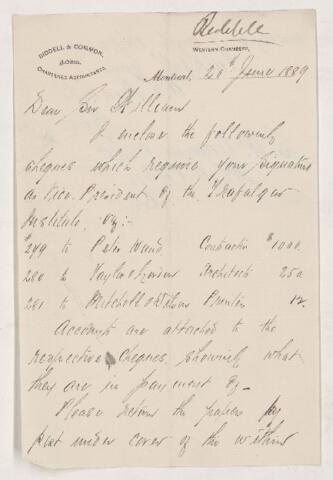 Riddell
RIDDELL & COMMON,
CHARTERED ACCOUNTANTS.
WESTERN CHAMBERS,
Montreal, 20th June 1889
Dear Sir William
I enclose the following
cheques which require your signature
as Vice President of the Trafalgar
Institute, viz:-
#279 to Peter Wand, Contractor $1000.
280 to Taylor & Architects 250
281 to Mitchell & Wilson Printers 12.
Accounts are attached to the
respective cheques, showing what
they are in payment of -
Please return the papers by
post under cover of the within